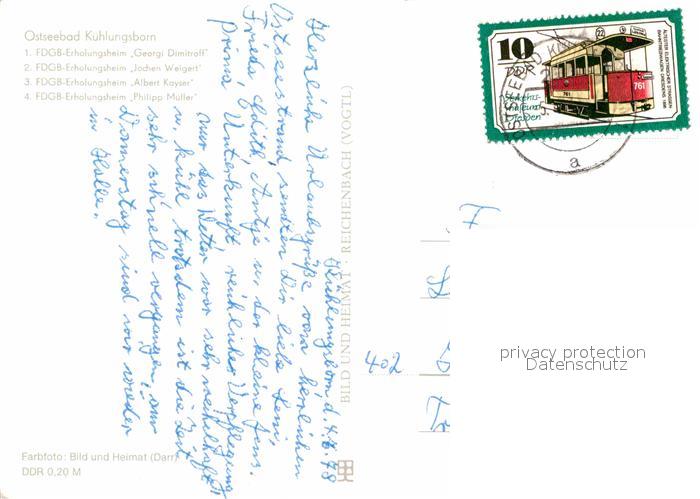 Ostseebad Kühlungsborn
1. FDGB-Erholungsheim „Georgi Dimitroff"
2. FDGB-Erholungsheim „Jochen Weigert"
3. FDGB-Erholungsheim „Albert Kayser"
4. FDGB-Erholungsheim „Philipp Müller"
Kühlungsborn d. 4.6.78
Herzliche Urlaubsgrüße vom herrlichen
Ostseestrand, senden Dir liebe
Frieda Edith, Antje u. der kleine Jens.
Prima Unterkunft, reichlicher Verpflegung
nur das Wetter war sehr wechselhaft
u. kühl trotzdem ist die Zeit
sehr schnell vergangen, am
Donnerstag sind wir wieder
in Halle.
BILD UND HEIMAT · REICHENBACH (VOGTL)
Farbfoto: Bild und Heimat (Darr)
DDR 0,20 M
10
DDR
Verkehrs-
museum
Dresden
22
761
761
ÄLTESTER ELEKTRISCHER STRASSEN-
BAHNTRIEBWAGEN DRESDENS 1896
a
402
privacy protection
Datenschutz